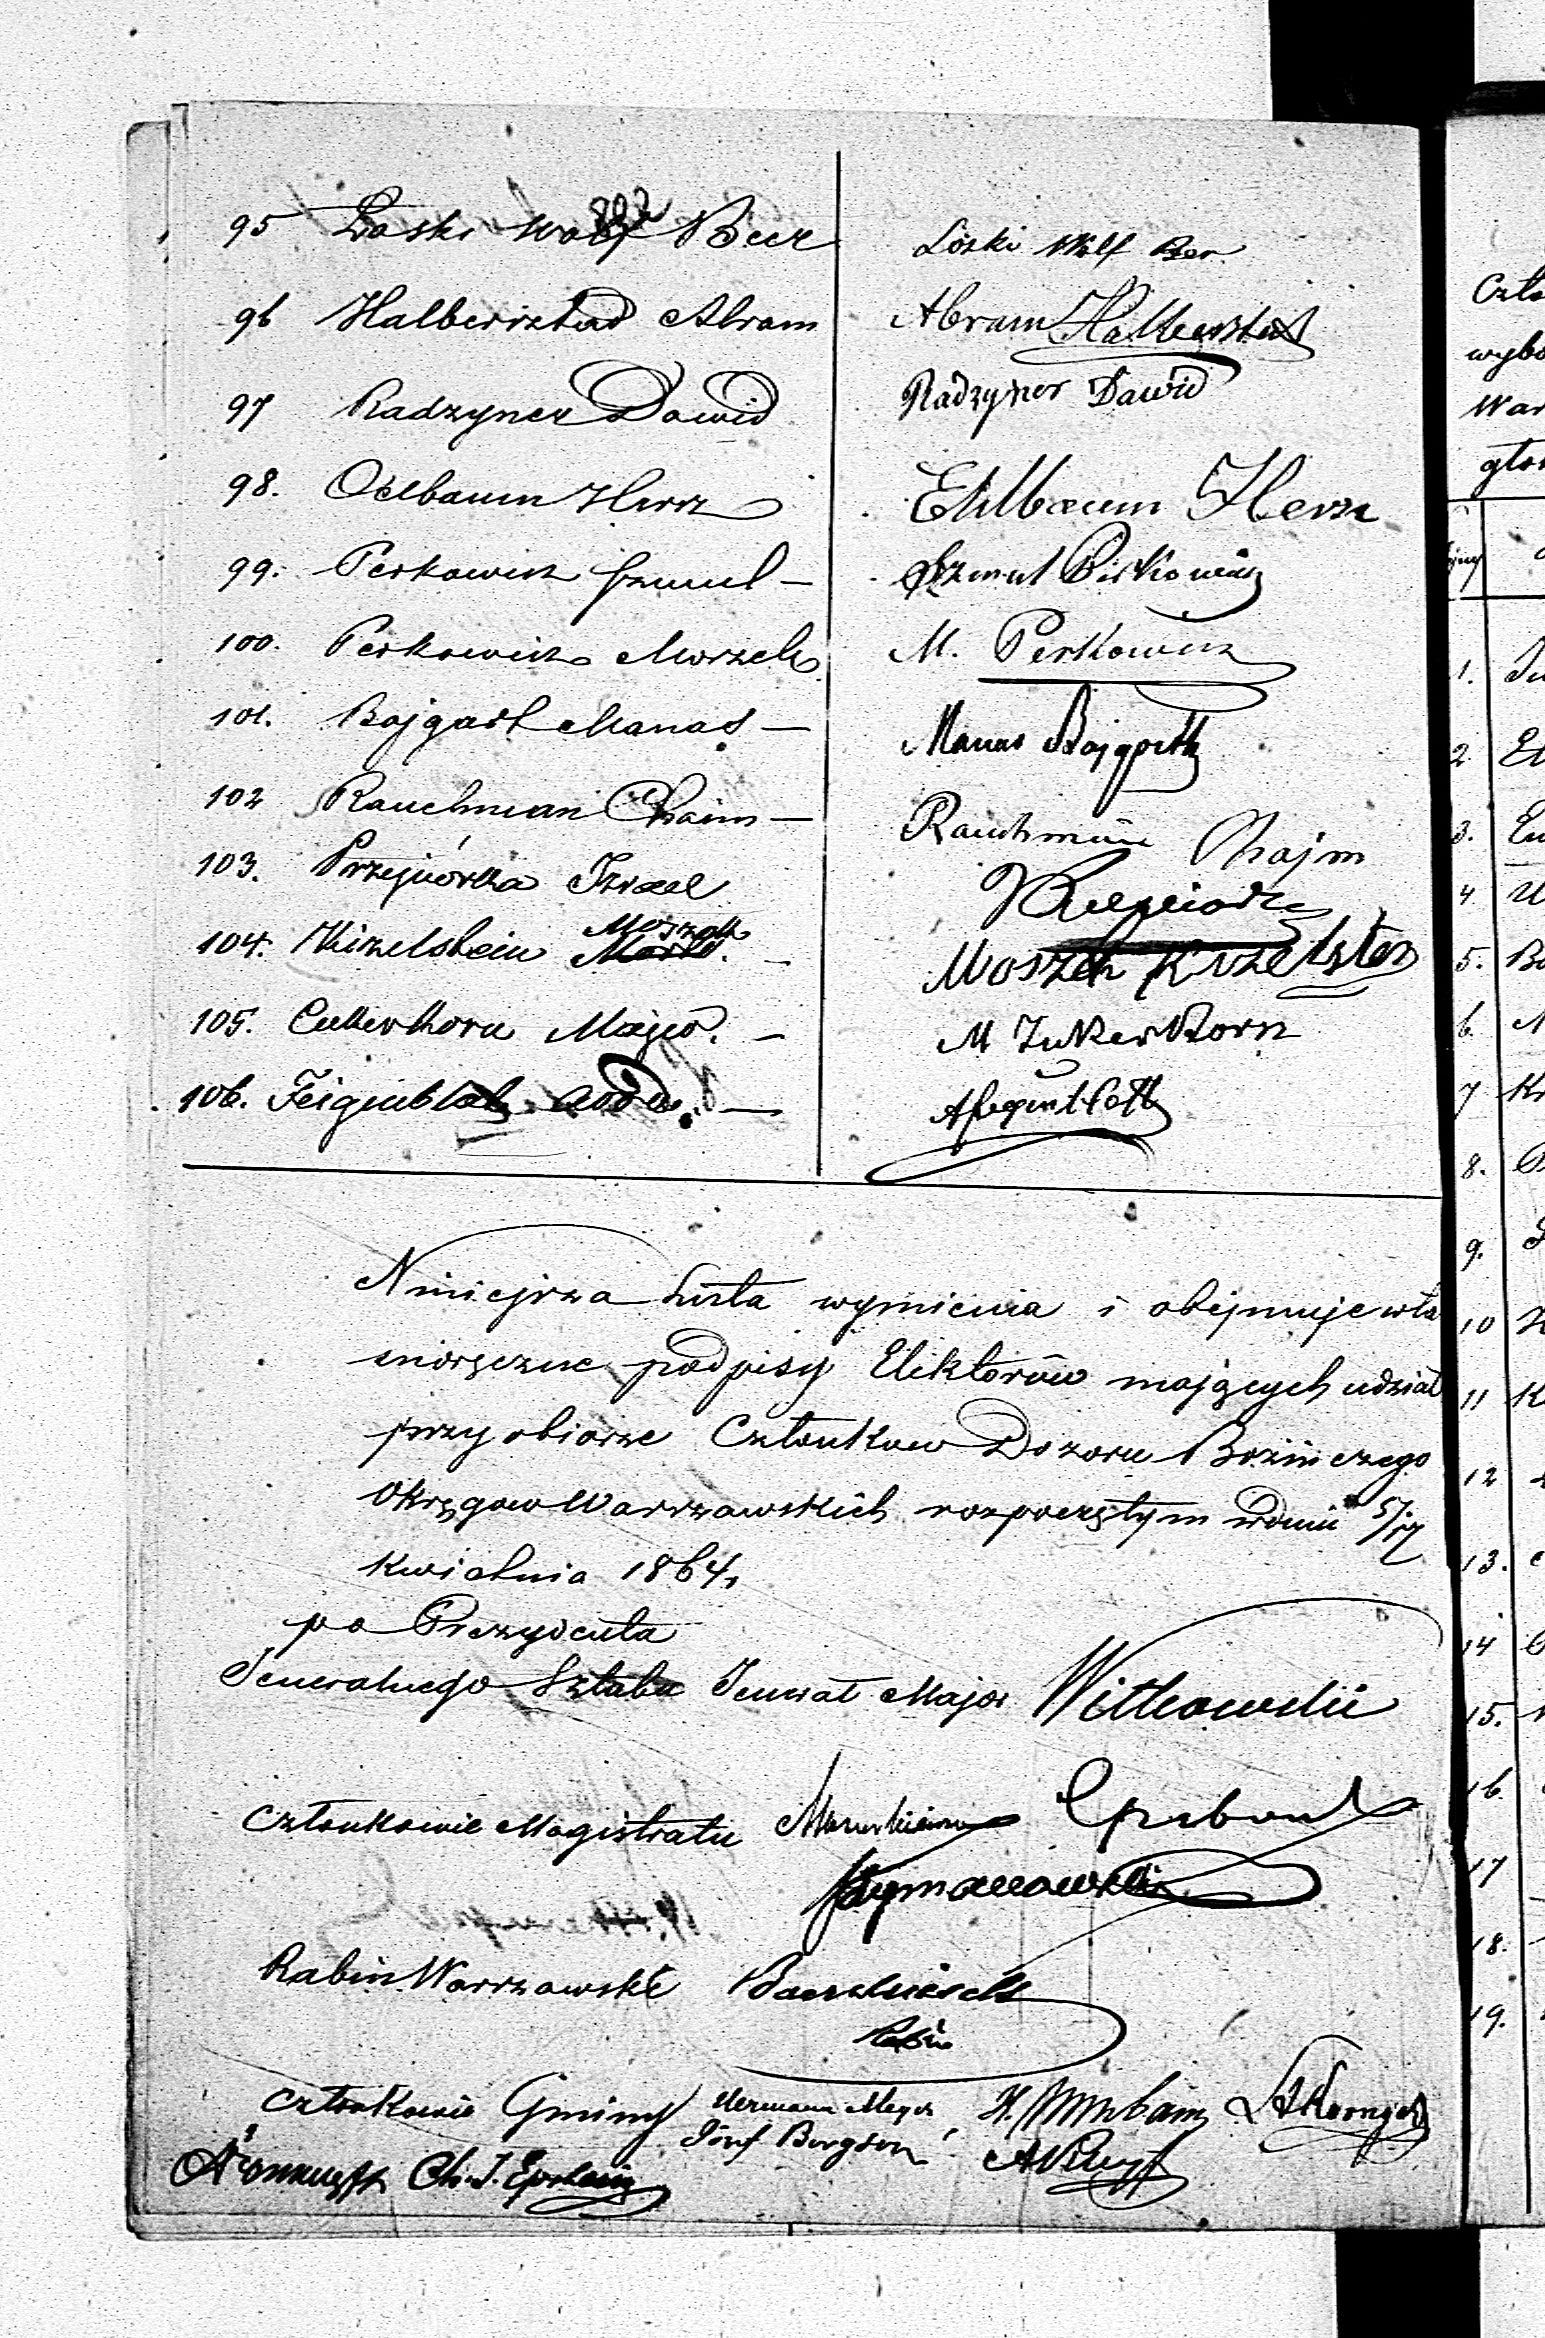 892
95 Łaski Wolf Beer Loski Wolf Ber
96 Halbersztad Abram Abram Halbersztad
97 Radzyner Dawid Radzyner Dawid
98. Oelbaum Hersz Ehlbaum Hersz
99. Perkowicz Szmul — Szmul Pirkowicz
100. Perkowicz Moszek M. Perkowicz
101. Bajgart Manas — Manas Bajgortt
102 Rauchman Chaim — Rauchman Chajm
103. Przepiórka Izrael
104. Kizelstein Moszek — Moszek Kizelsztez
105. Cukierkorn Majer. — M Zukerkorn
106. Feigenblat —
Niniejsza Lista wymienia i obejmuje wła
snoręczne podpisy Elektorów mających udział
przy obiorze Członkow Dozoru Bożniczego
Okręgow Warszawskich rozpoczętym w dniu 5/17
Kwietnia 1864,
po Prezydenta
Jeneralnego Sztabu Jenerał Major Witkowski
Członkowie Magistratu
Szymanowski
Rabin Warszawski
Rabin
Członkowie Gminy Hermann Meyer
Józef Bergson
Ch. J. Epstein
Czło
wybo
War
głos
1.
2
3.
4
5.
6.
7
8.
9.
10
11
12
13.
14
15.
16.
17
18.
19.